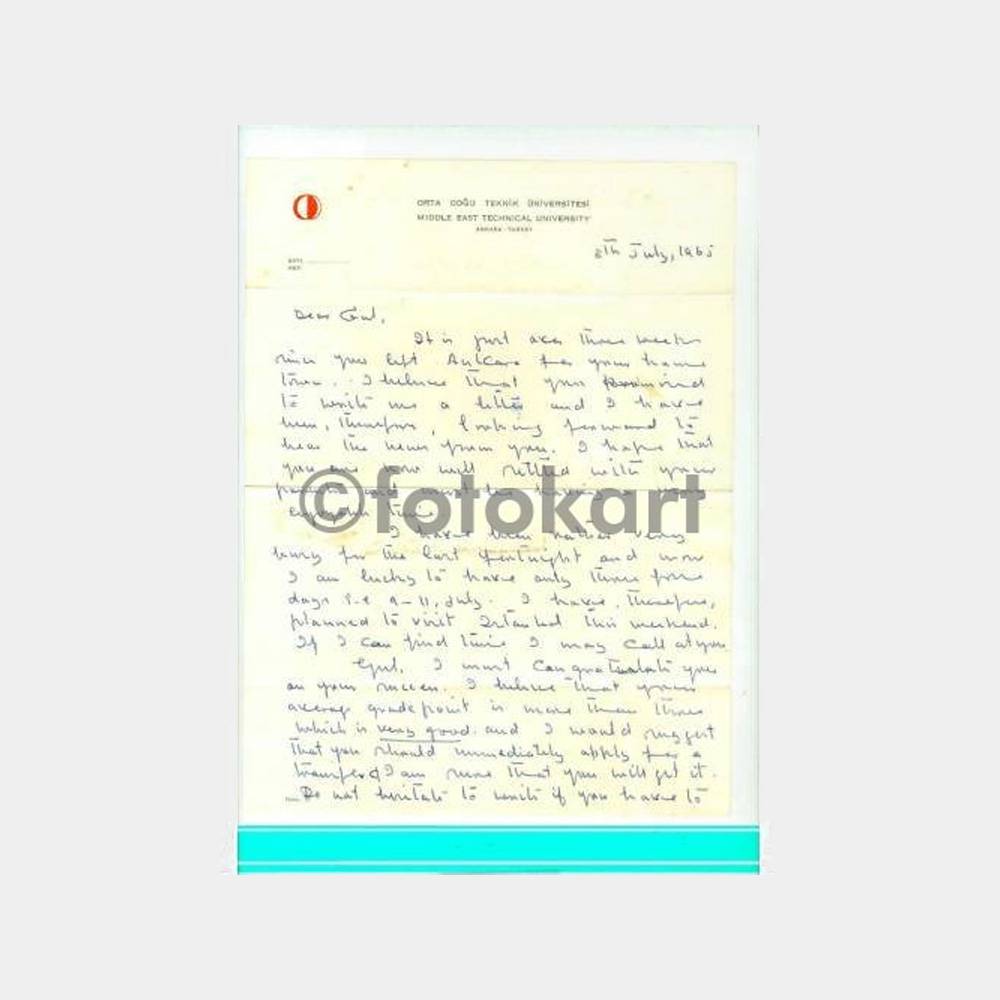 ORTA DOĞU TEKNİK ÜNİVERSİTESİ
MIDDLE EAST TECHNICAL UNIVERSITY
ANKARA - TURKEY
8th July, 1965
Dear Gul,
It is just over three weeks
since you left Ankara for your home
town. I believe that your mind
to write me a letter and I have
been, therefore, looking forward to
hear the news from you. I hope that
you are now well settled with your
parents and must be having a
enjoyable time.
©fotokart
I have been rather very
busy for the last fortnight and now
I am lucky to have only three free
days i.e 9-11, July. I have, therefore,
planned to visit Istanbul this weekend.
If I can find time I may call at you
Gul, I must congratulate you
on your success. I believe that your
average grade point is more than three
which is very good. and I would suggest
that you should immediately apply for a
transfer & I am sure that you will get it.
Do not hesitate to write if you have to